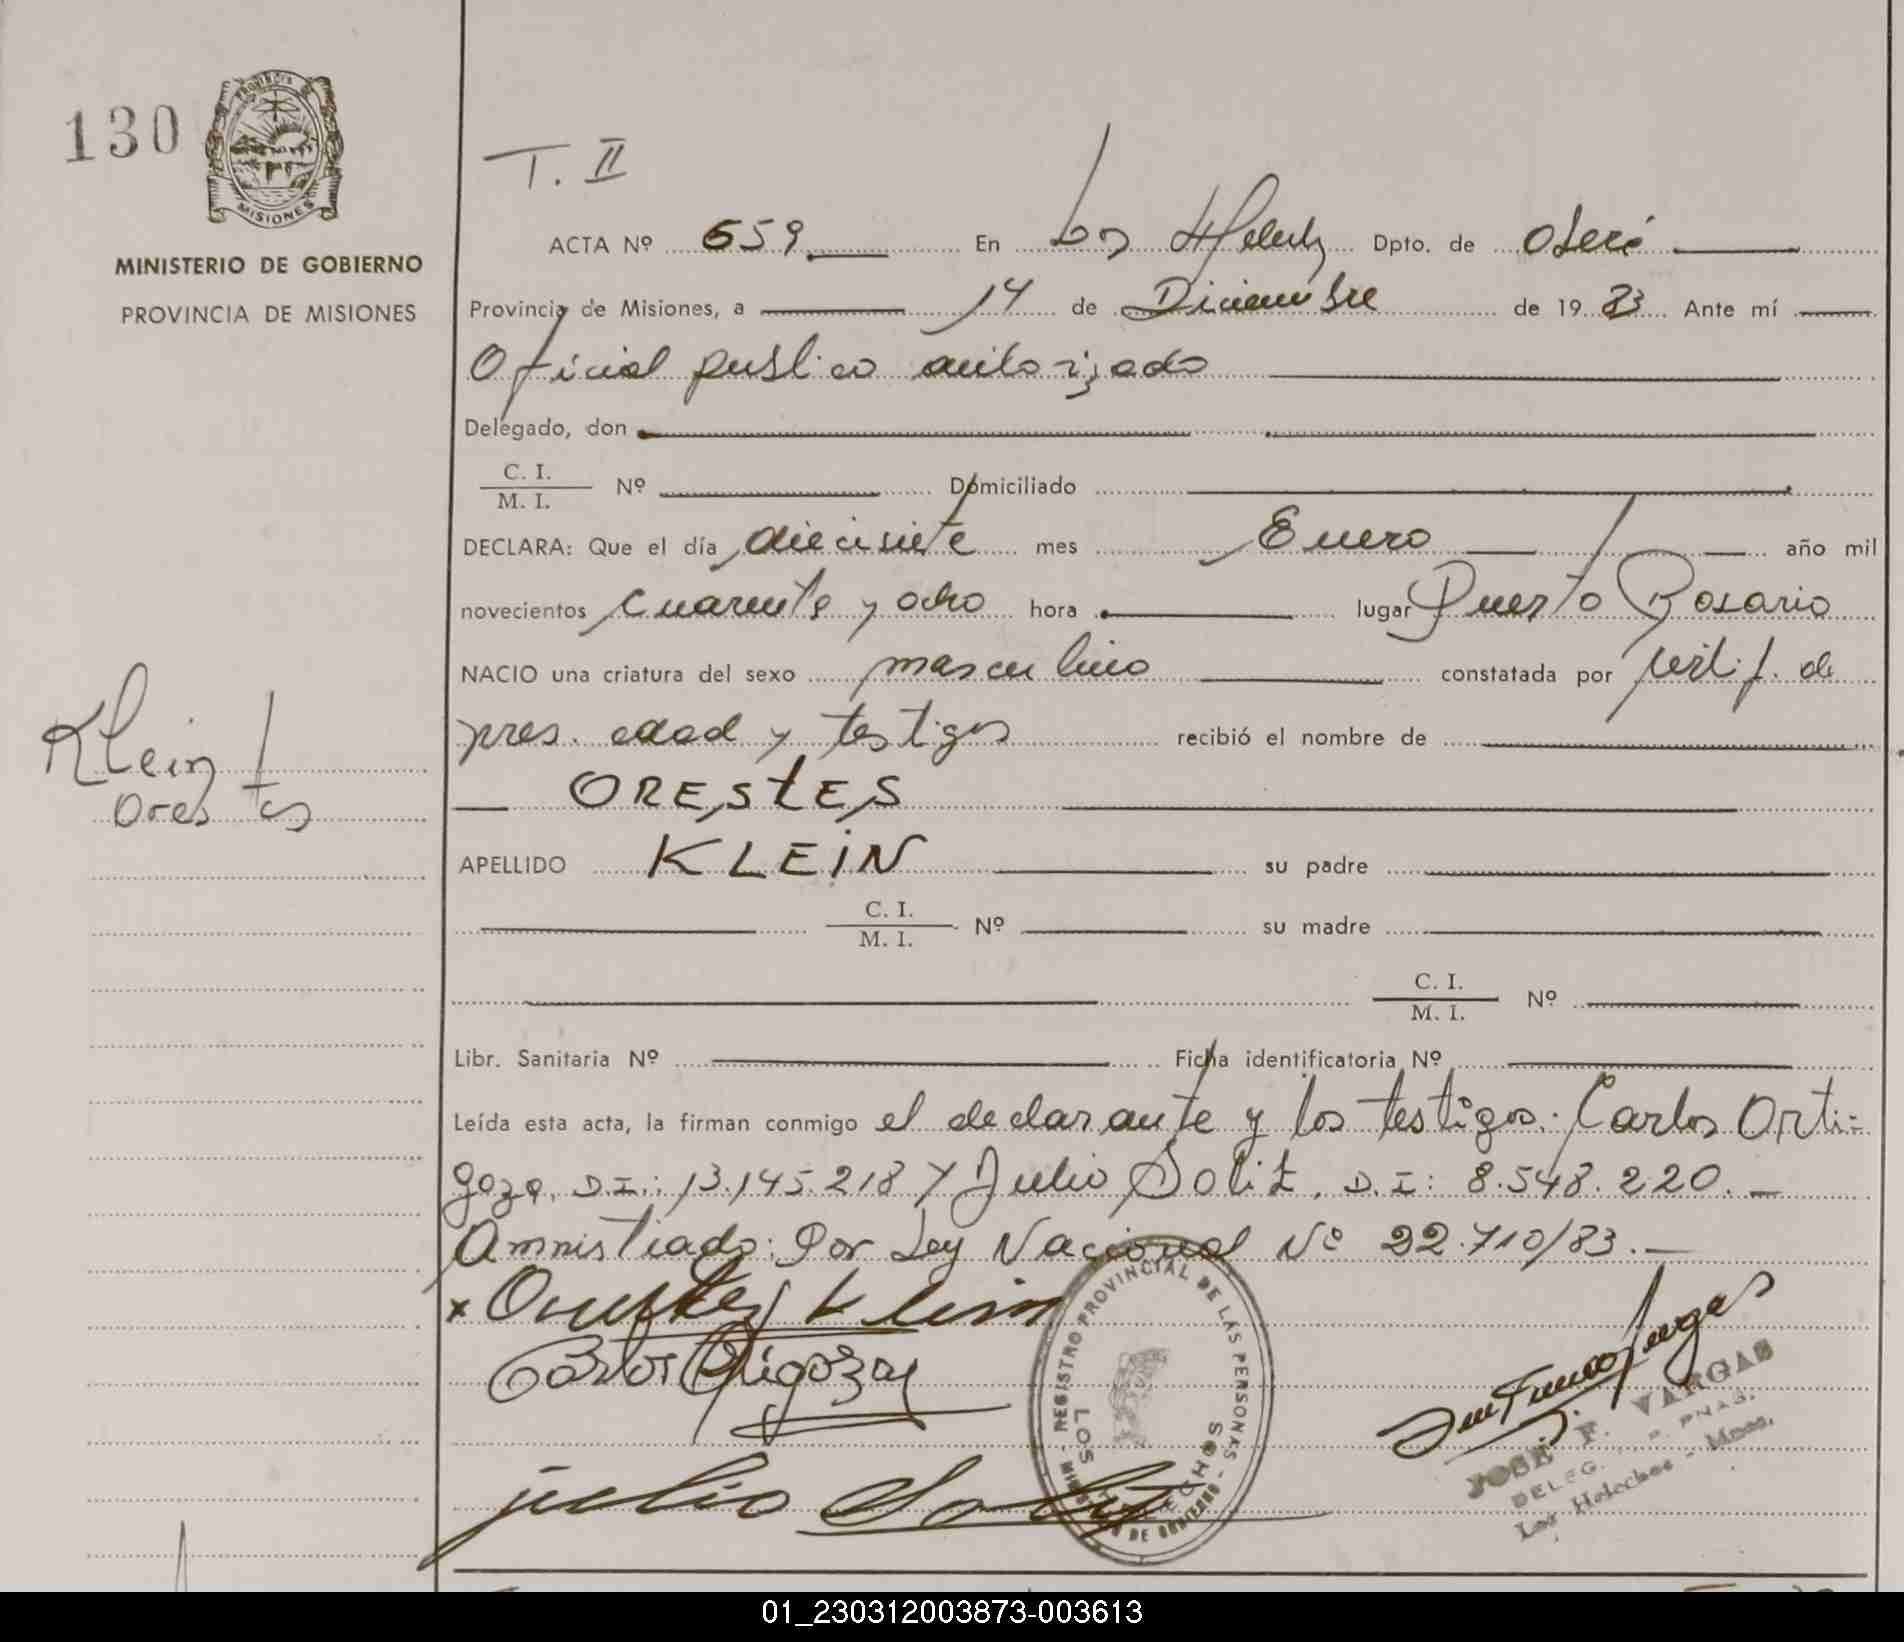 130
PROVINCIA
MISIONES
MINISTERIO DE GOBIERNO
PROVINCIA DE MISIONES
T. II
ACTA Nº 659 En Los Helech Dpto. de Oberá
Provincia de Misiones, a 14 de Diciembre de 1983 Ante mí
Oficial publico autorizado
Delegado, don
C. I.
M. I. Nº Domiciliado
DECLARA: Que el día diecisiete mes Enero año mil
novecientos cuarenta y ocho hora lugar Puerto Rosario
NACIO una criatura del sexo masculino constatada por certif. de
pres. edad y testigos recibió el nombre de
ORESTES
Klein
Orestes
APELLIDO KLEIN su padre
C. I.
M. I. Nº su madre
C. I.
M. I. Nº
Libr. Sanitaria Nº Ficha identificatoria Nº
Leída esta acta, la firman conmigo el declarante y los testigos: Carlos Orti-
goza, D.I.: 13.145.218 y Julio Soliz, D.I: 8.548.220.-
Amnistiado: Por Ley Nacional Nº 22.710/83.-
x Orestes Klein
Carlos Ortigoza
Julio Soliz
REGISTRO PROVINCIAL DE LAS PERSONAS - MINISTERIO DE GOBIERNO -
LOS HELECHOS
JOSE F. VARGAS
DELEG. R. PNAS.
Los Helechos - Mnes.
01_230312003873-003613